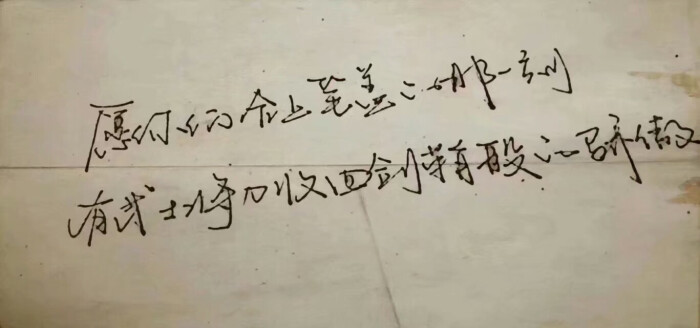 愿你们合上笔盖的那一刻
有武士将刀收回剑鞘般的骄傲